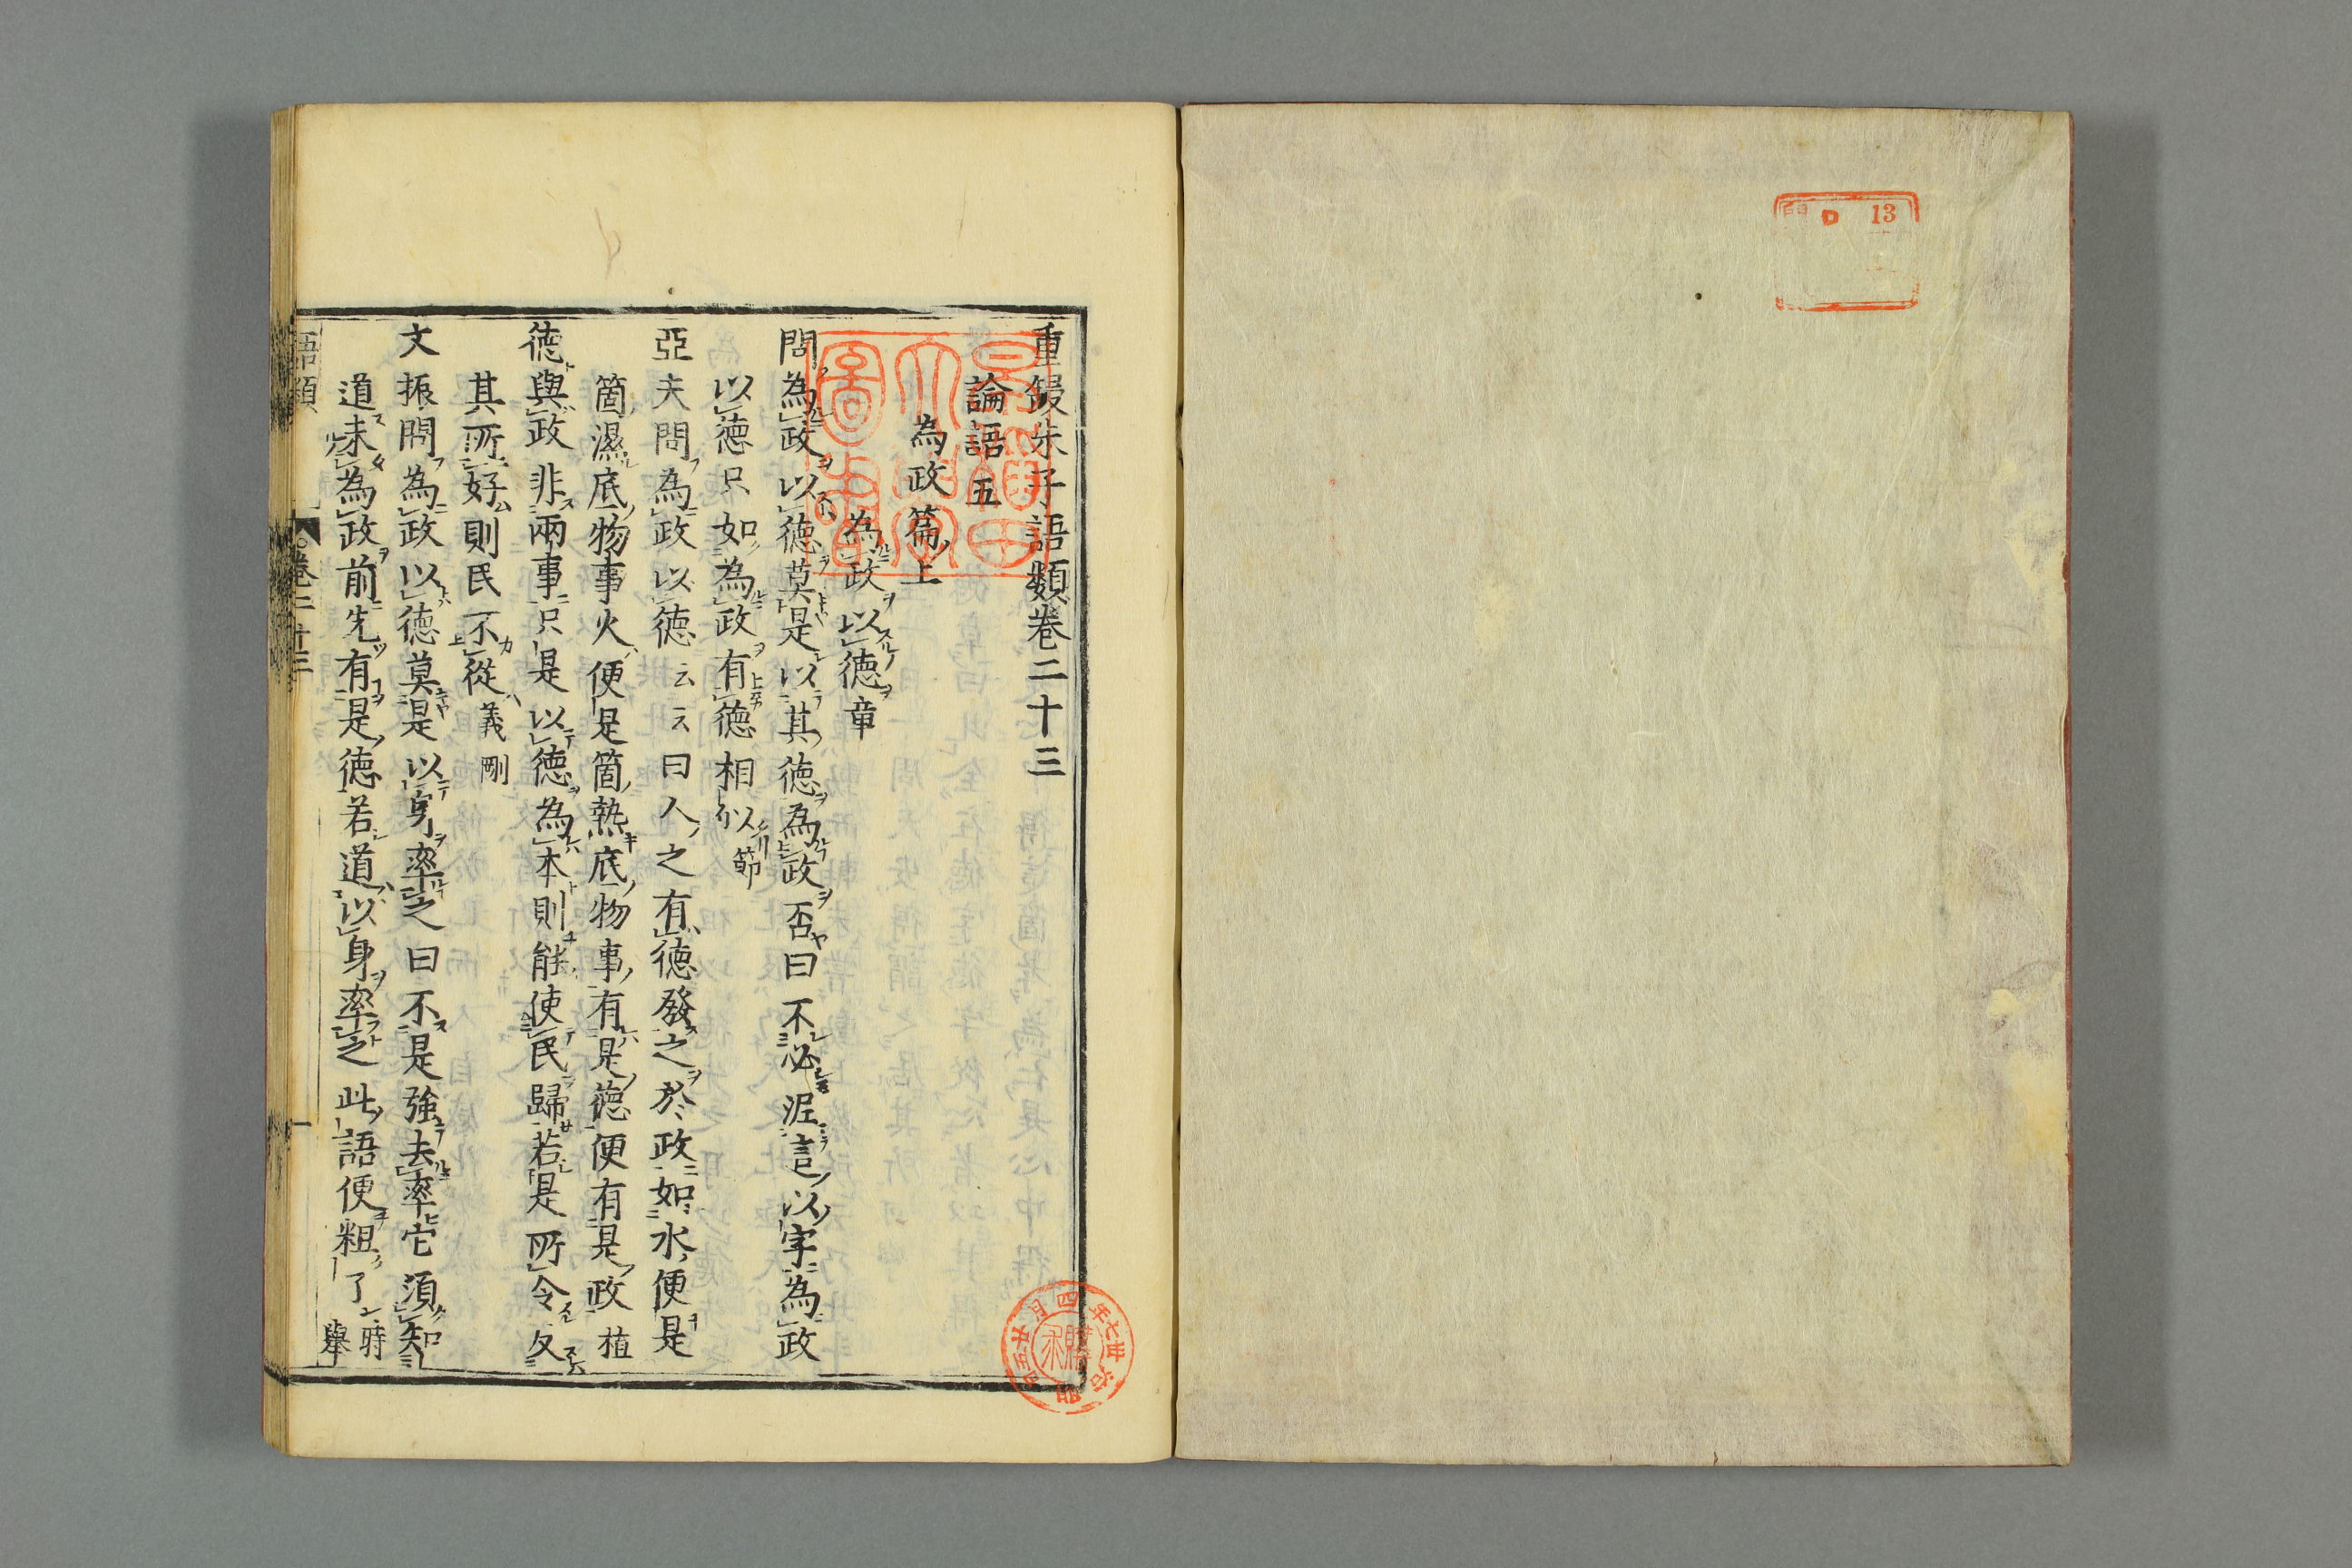 重鋟朱子語類卷二十三
論語五
為政篇上
為政以德章
問為政以德莫是以其德為政否曰不必泥這以字為政
以德只如為政有德相似節
亞夫問為政以德云云曰人之有德發之於政如水便是
箇濕底物事火便是箇熱底物事有是德便有是政植
德與政非兩事只是以德為本則能使民歸若是所令反
其所好則民不從義剛
文振問為政以德莫是以身率之曰不是強去率它須知
道未為政前先有是德若道以身率之此語便粗了時舉
語類
卷二十三
一
13
明治卅七年四月廿五日
購求